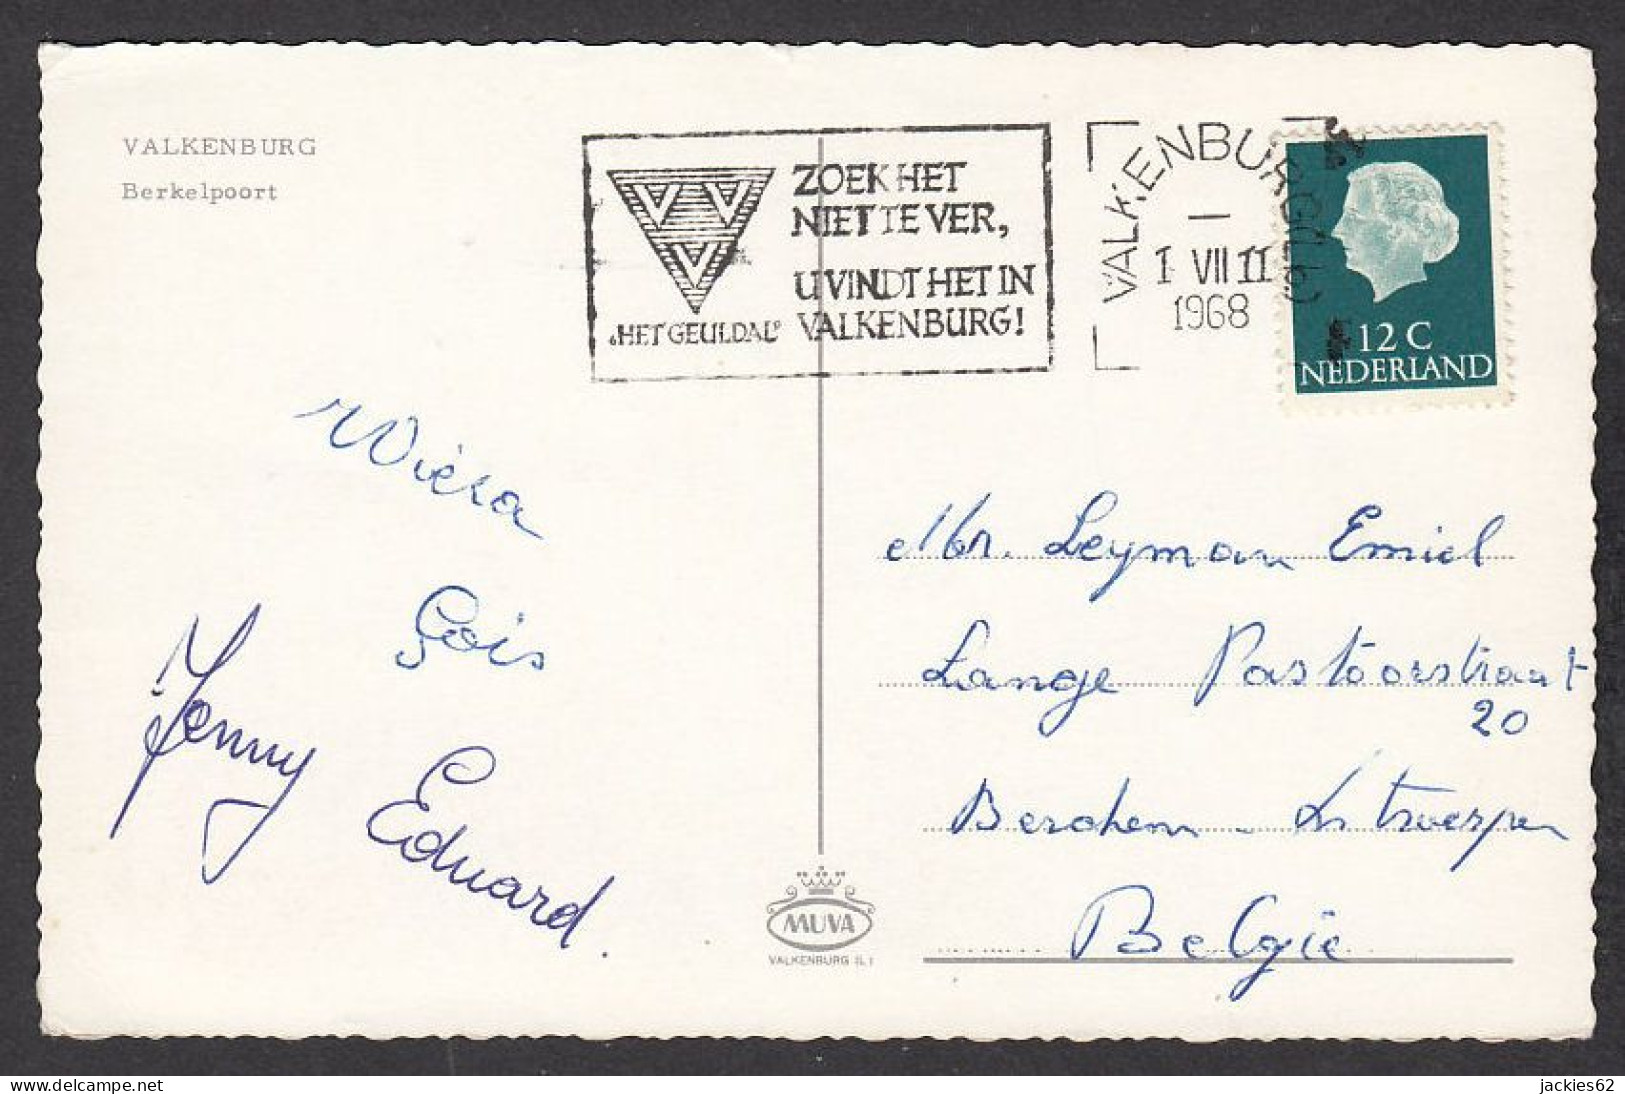 VALKENBURG
Berkelpoort
ZOEK HET
NIET TE VER,
U VINDT HET IN
VALKENBURG!
„HET GEULDAL"
VALKENBURG
1 VII 11
1968
12 C
NEDERLAND
Wiera
Jenny
Eduard.
Mr. Leyman Emiel
Lange Pastoorstraat
20
Berchem - Antwerpen
België
MUVA
VALKENBURG (L)
jackies62